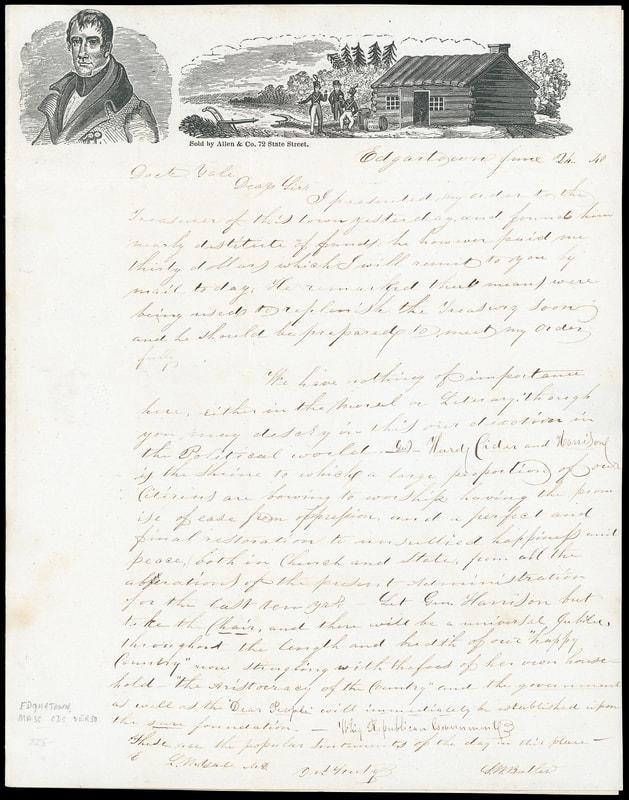 Sold by Allen & Co. 72 State Street.
Edgartown June 24. 40
Doct Yale
Dear Sir
I presented my order to the
Treasurer of this town yesterday, and found him
nearly destitute of funds, he however paid me
thirty dollars which I will remit to you by
mail to day. He remarked that means were
being used to replenish the Treasury soon
and he should be prepared to meet my order
fully
We have nothing of importance
here, either in the Moral or Literary, though
you may descry in this our direction in
the Political world. Hurdy Cider and Harrison
is the Shrine to which a large proportion of our
Citizens are bowing to worship having the prom
ise of ease from oppression, and a perfect and
final restoration to unsullied happiness and
peace, both in Church and State, from all the
aberations of the present Administration
for the last ten yrs. Let Gen. Harrison but
take the Chair, and there will be a universal Jubilee,
throughout the length and bredth of our "happy
Country" now strugling with the foes of her own house
hold - "the Aristocracy of the Country" and the government
as well as the Dear People will immediately be established upon
the sure foundation. — Whig Republican Government
These are the popular Sentiments of the day in this place —
EDGARTOWN,
MASS CDS VERSO